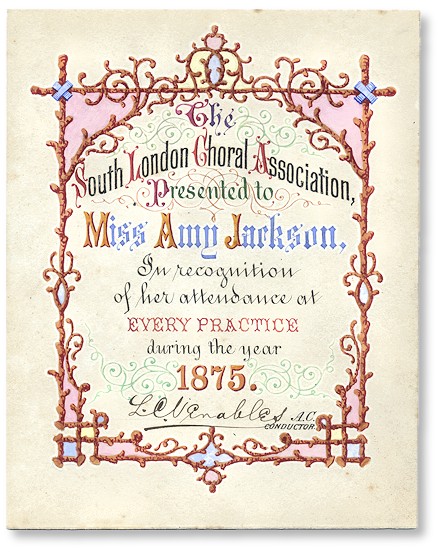 The
South London Choral Association,
Presented to
Miss Amy Jackson.
In recognition
of her attendance at
EVERY PRACTICE
during the year
1875.
L.C. Venables A.C.
CONDUCTOR.